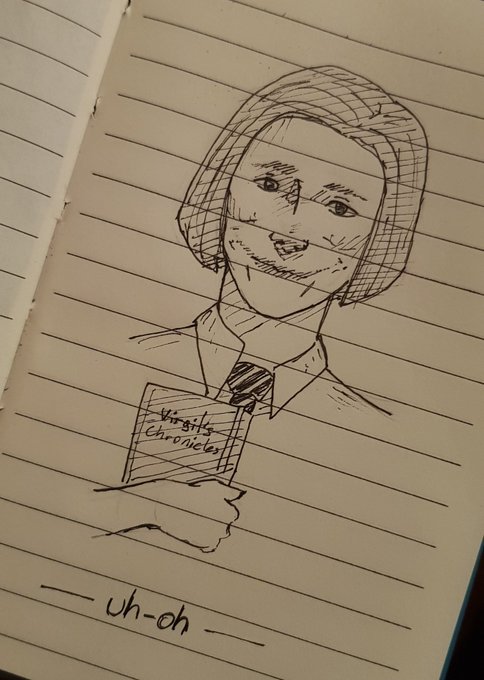 Virgil's
Chronicles
— uh-oh —